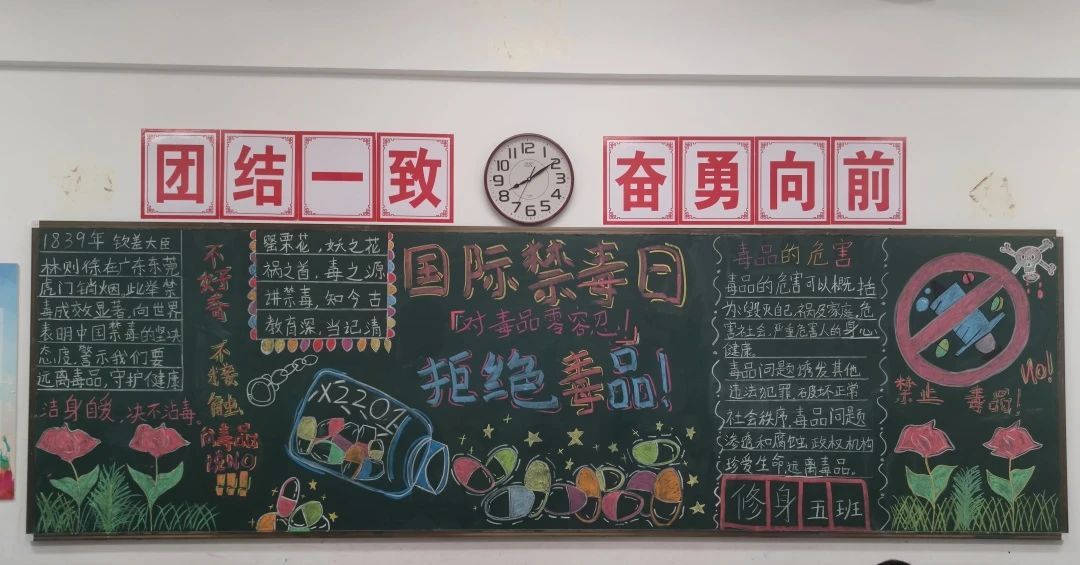 团结一致
奋勇向前
12
1
2
3
4
5
6
7
8
9
10
11
1839年 钦差大臣
林则徐在广东东莞
虎门销烟,此举禁
毒成效显著,向世界
表明中国禁毒的坚决
态度,警示我们要
远离毒品,守护健康
洁身自爱、决不沾毒。
不好奇
不接触
向毒品
说NO
!!!
罂栗花,妖之花
祸之首,毒之源
讲禁毒,知今古
教育深,当记清
国际禁毒日
「对毒品零容忍!」
拒绝毒品!
X2201
毒品的危害
毒品的危害可以概括
为:毁灭自己,祸及家庭,危
害社会,严重危害人的身心
健康
毒品问题诱发其他
违法犯罪,破坏正常
社会秩序,毒品问题
渗透和腐蚀政权机构
珍爱生命远离毒品。
修身五班
NO!
禁止 毒品!